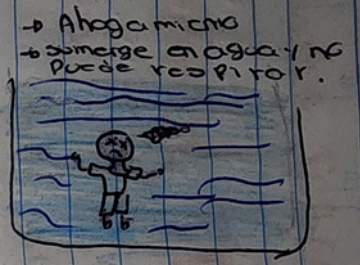 → Ahogamiento
→ sumerge en agua y no
puede respirar.